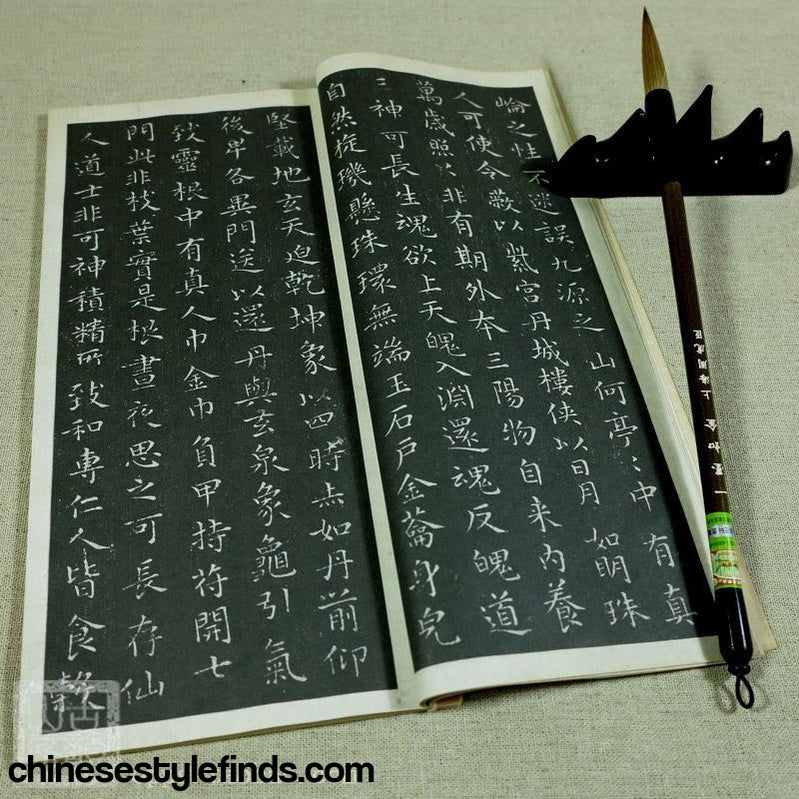 崘之性不迷誤九源之山何亭〻中有真
人可使令蔽以紫宮丹城樓俠以日月如明珠
萬歲照〻非有期外本三陽物自来内養
三神可長生魂欲上天魄入淵還魂反魄道
自然旋璣懸珠環無端玉石戶金籥身皃
堅載地玄天迫乾坤象以四時赤如丹前仰
後卑各異門送以還丹與玄泉象龜引氣
致靈根中有真人巾金巾負甲持符開七
門此非枝葉實是根晝夜思之可長存仙
人道士非可神積精所致和專仁人皆食
一墨如金 上海周虎臣
chinesestylefinds.com